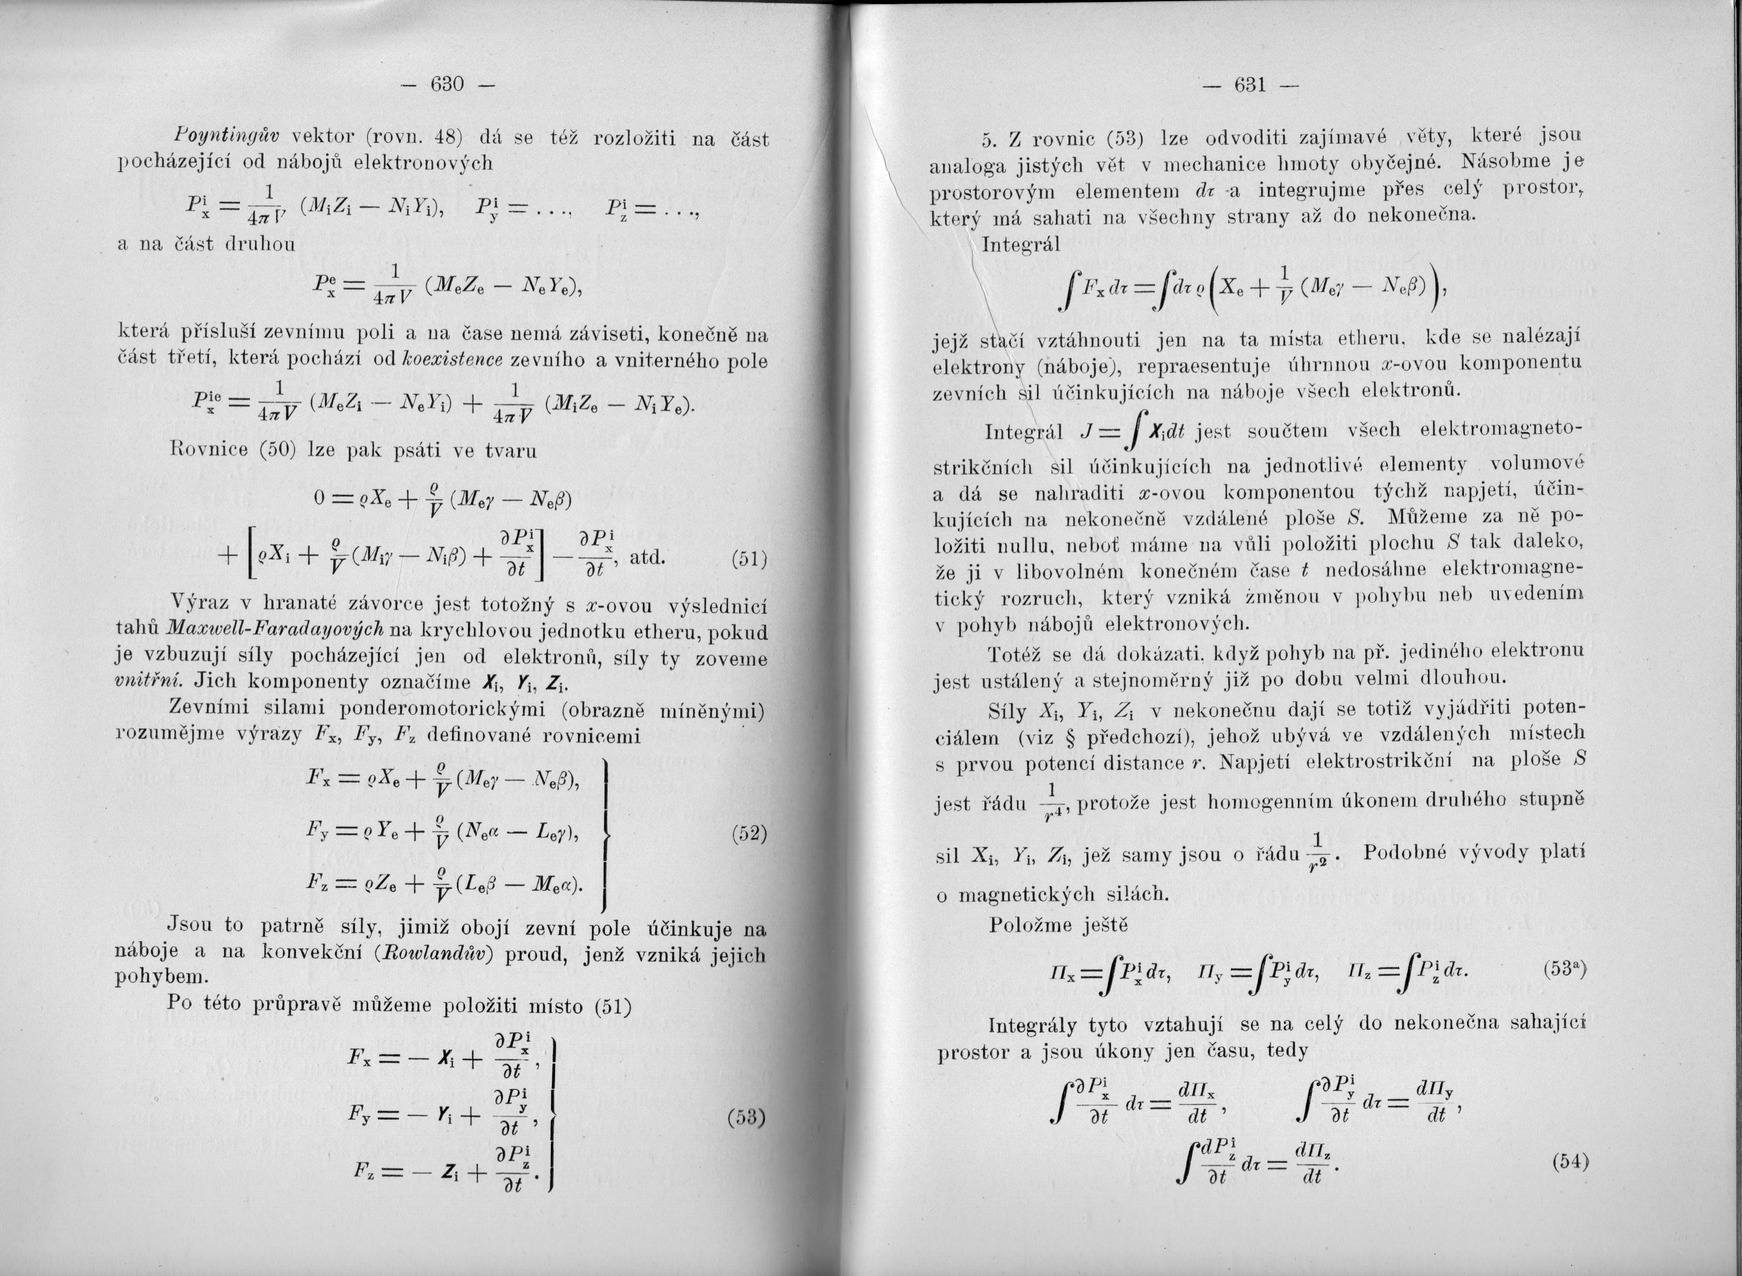 — 630 —
Poyntingův vektor (rovn. 48) dá se též rozložiti na část
pocházející od nábojů elektronových
P^i_x = 1/(4πV) (M_iZ_i — N_iY_i), P^i_y = . . ., P^i_z = . . .,
a na část druhou
P^e_x = 1/(4πV) (M_eZ_e — N_eY_e),
která přísluší zevnímu poli a na čase nemá záviseti, konečně na
část třetí, která pochází od koexistence zevního a vniterného pole
P^ie_x = 1/(4πV) (M_eZ_i — N_eY_i) + 1/(4πV) (M_iZ_e — N_iY_e).
Rovnice (50) lze pak psáti ve tvaru
0 = ϱX_e + ϱ/V (M_eγ — N_eβ)
+ [ϱX_i + ϱ/V (M_iγ — N_iβ) + ∂P^i_x/∂t] — ∂P^i_x/∂t, atd. (51)
Výraz v hranaté závorce jest totožný s x-ovou výslednicí
tahů Maxwell-Faradayových na krychlovou jednotku etheru, pokud
je vzbuzují síly pocházející jen od elektronů, síly ty zoveme
vnitřní. Jich komponenty označíme X_i, Y_i, Z_i.
Zevními silami ponderomotorickými (obrazně míněnými)
rozumějme výrazy F_x, F_y, F_z definované rovnicemi
F_x = ϱX_e + ϱ/V (M_eγ — N_eβ),
F_y = ϱY_e + ϱ/V (N_eα — L_eγ), (52)
F_z = ϱZ_e + ϱ/V (L_eβ — M_eα).
Jsou to patrně síly, jimiž obojí zevní pole účinkuje na
náboje a na konvekční (Rowlandův) proud, jenž vzniká jejich
pohybem.
Po této průpravě můžeme položiti místo (51)
F_x = — X_i + ∂P^i_x/∂t,
F_y = — Y_i + ∂P^i_y/∂t, (53)
F_z = — Z_i + ∂P^i_z/∂t.
— 631 —
5. Z rovnic (53) lze odvoditi zajímavé věty, které jsou
analoga jistých vět v mechanice hmoty obyčejné. Násobme je
prostorovým elementem dτ a integrujme přes celý prostor,
který má sahati na všechny strany až do nekonečna.
Integrál
∫F_x dτ = ∫dτ ϱ (X_e + 1/V (M_eγ — N_eβ)),
jejž stačí vztáhnouti jen na ta místa etheru, kde se nalézají
elektrony (náboje), repraesentuje úhrnnou x-ovou komponentu
zevních sil účinkujících na náboje všech elektronů.
Integrál J = ∫X_idt jest součtem všech elektromagneto-
strikčních sil účinkujících na jednotlivé elementy volumové
a dá se nahraditi x-ovou komponentou týchž napjetí, účin-
kujících na nekonečně vzdálené ploše S. Můžeme za ně po-
ložiti nullu, neboť máme na vůli položiti plochu S tak daleko,
že ji v libovolném konečném čase t nedosáhne elektromagne-
tický rozruch, který vzniká změnou v pohybu neb uvedením
v pohyb nábojů elektronových.
Totéž se dá dokázati, když pohyb na př. jediného elektronu
jest ustálený a stejnoměrný již po dobu velmi dlouhou.
Síly X_i, Y_i, Z_i v nekonečnu dají se totiž vyjádřiti poten-
ciálem (viz § předchozí), jehož ubývá ve vzdálených místech
s prvou potencí distance r. Napjetí elektrostrikční na ploše S
jest řádu 1/r^4, protože jest homogenním úkonem druhého stupně
sil X_i, Y_i, Z_i, jež samy jsou o řádu 1/r^2. Podobné vývody platí
o magnetických silách.
Položme ještě
Π_x = ∫P^i_x dτ, Π_y = ∫P^i_y dτ, Π_z = ∫P^i_z dτ. (53^a)
Integrály tyto vztahují se na celý do nekonečna sahající
prostor a jsou úkony jen času, tedy
∫∂P^i_x/∂t dτ = dΠ_x/dt, ∫∂P^i_y/∂t dτ = dΠ_y/dt,
∫dP^i_z/∂t dτ = dΠ_z/dt. (54)